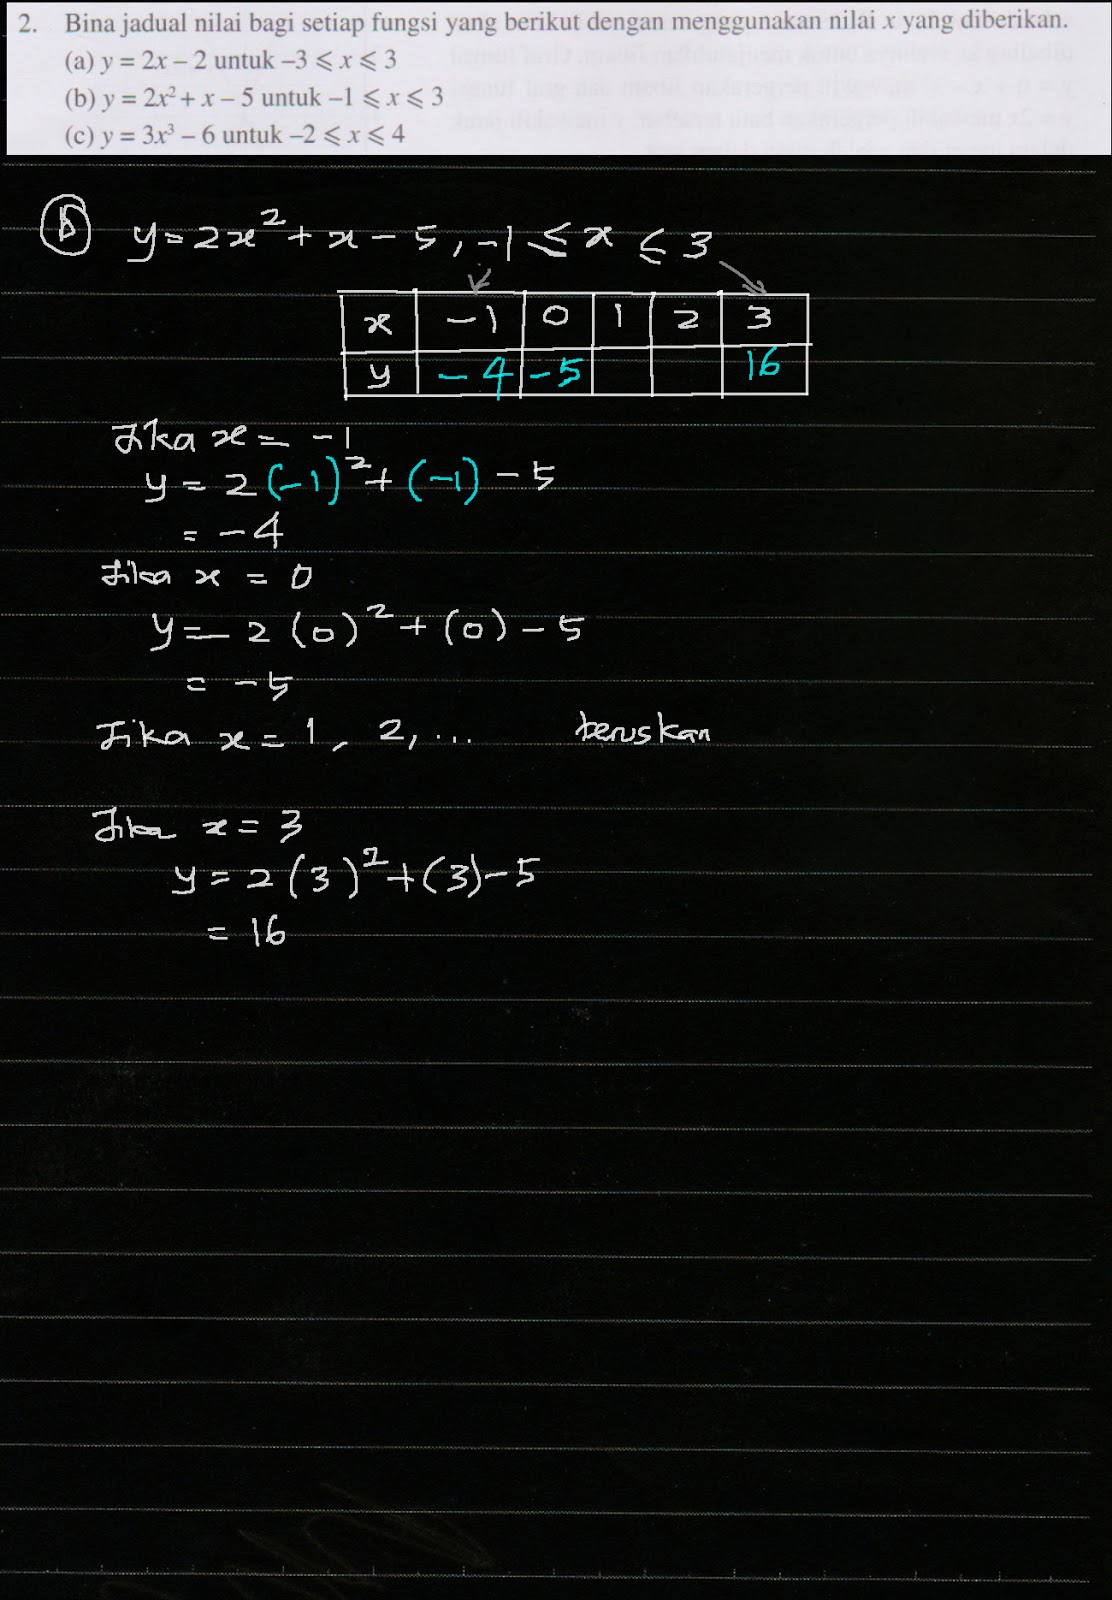 2. Bina jadual nilai bagi setiap fungsi yang berikut dengan menggunakan nilai x yang diberikan.
(a) y = 2x – 2 untuk –3 ⩽ x ⩽ 3
(b) y = 2x² + x – 5 untuk –1 ⩽ x ⩽ 3
(c) y = 3x³ – 6 untuk –2 ⩽ x ⩽ 4
b y = 2x² + x – 5, –1 ≤ x ≤ 3
x –1 0 1 2 3
y –4 –5 16
Jika x = –1
y = 2(–1)² + (–1) – 5
= –4
Jika x = 0
y = 2(0)² + (0) – 5
= –5
Jika x = 1, 2, ... teruskan
Jika x = 3
y = 2(3)² + (3) – 5
= 16